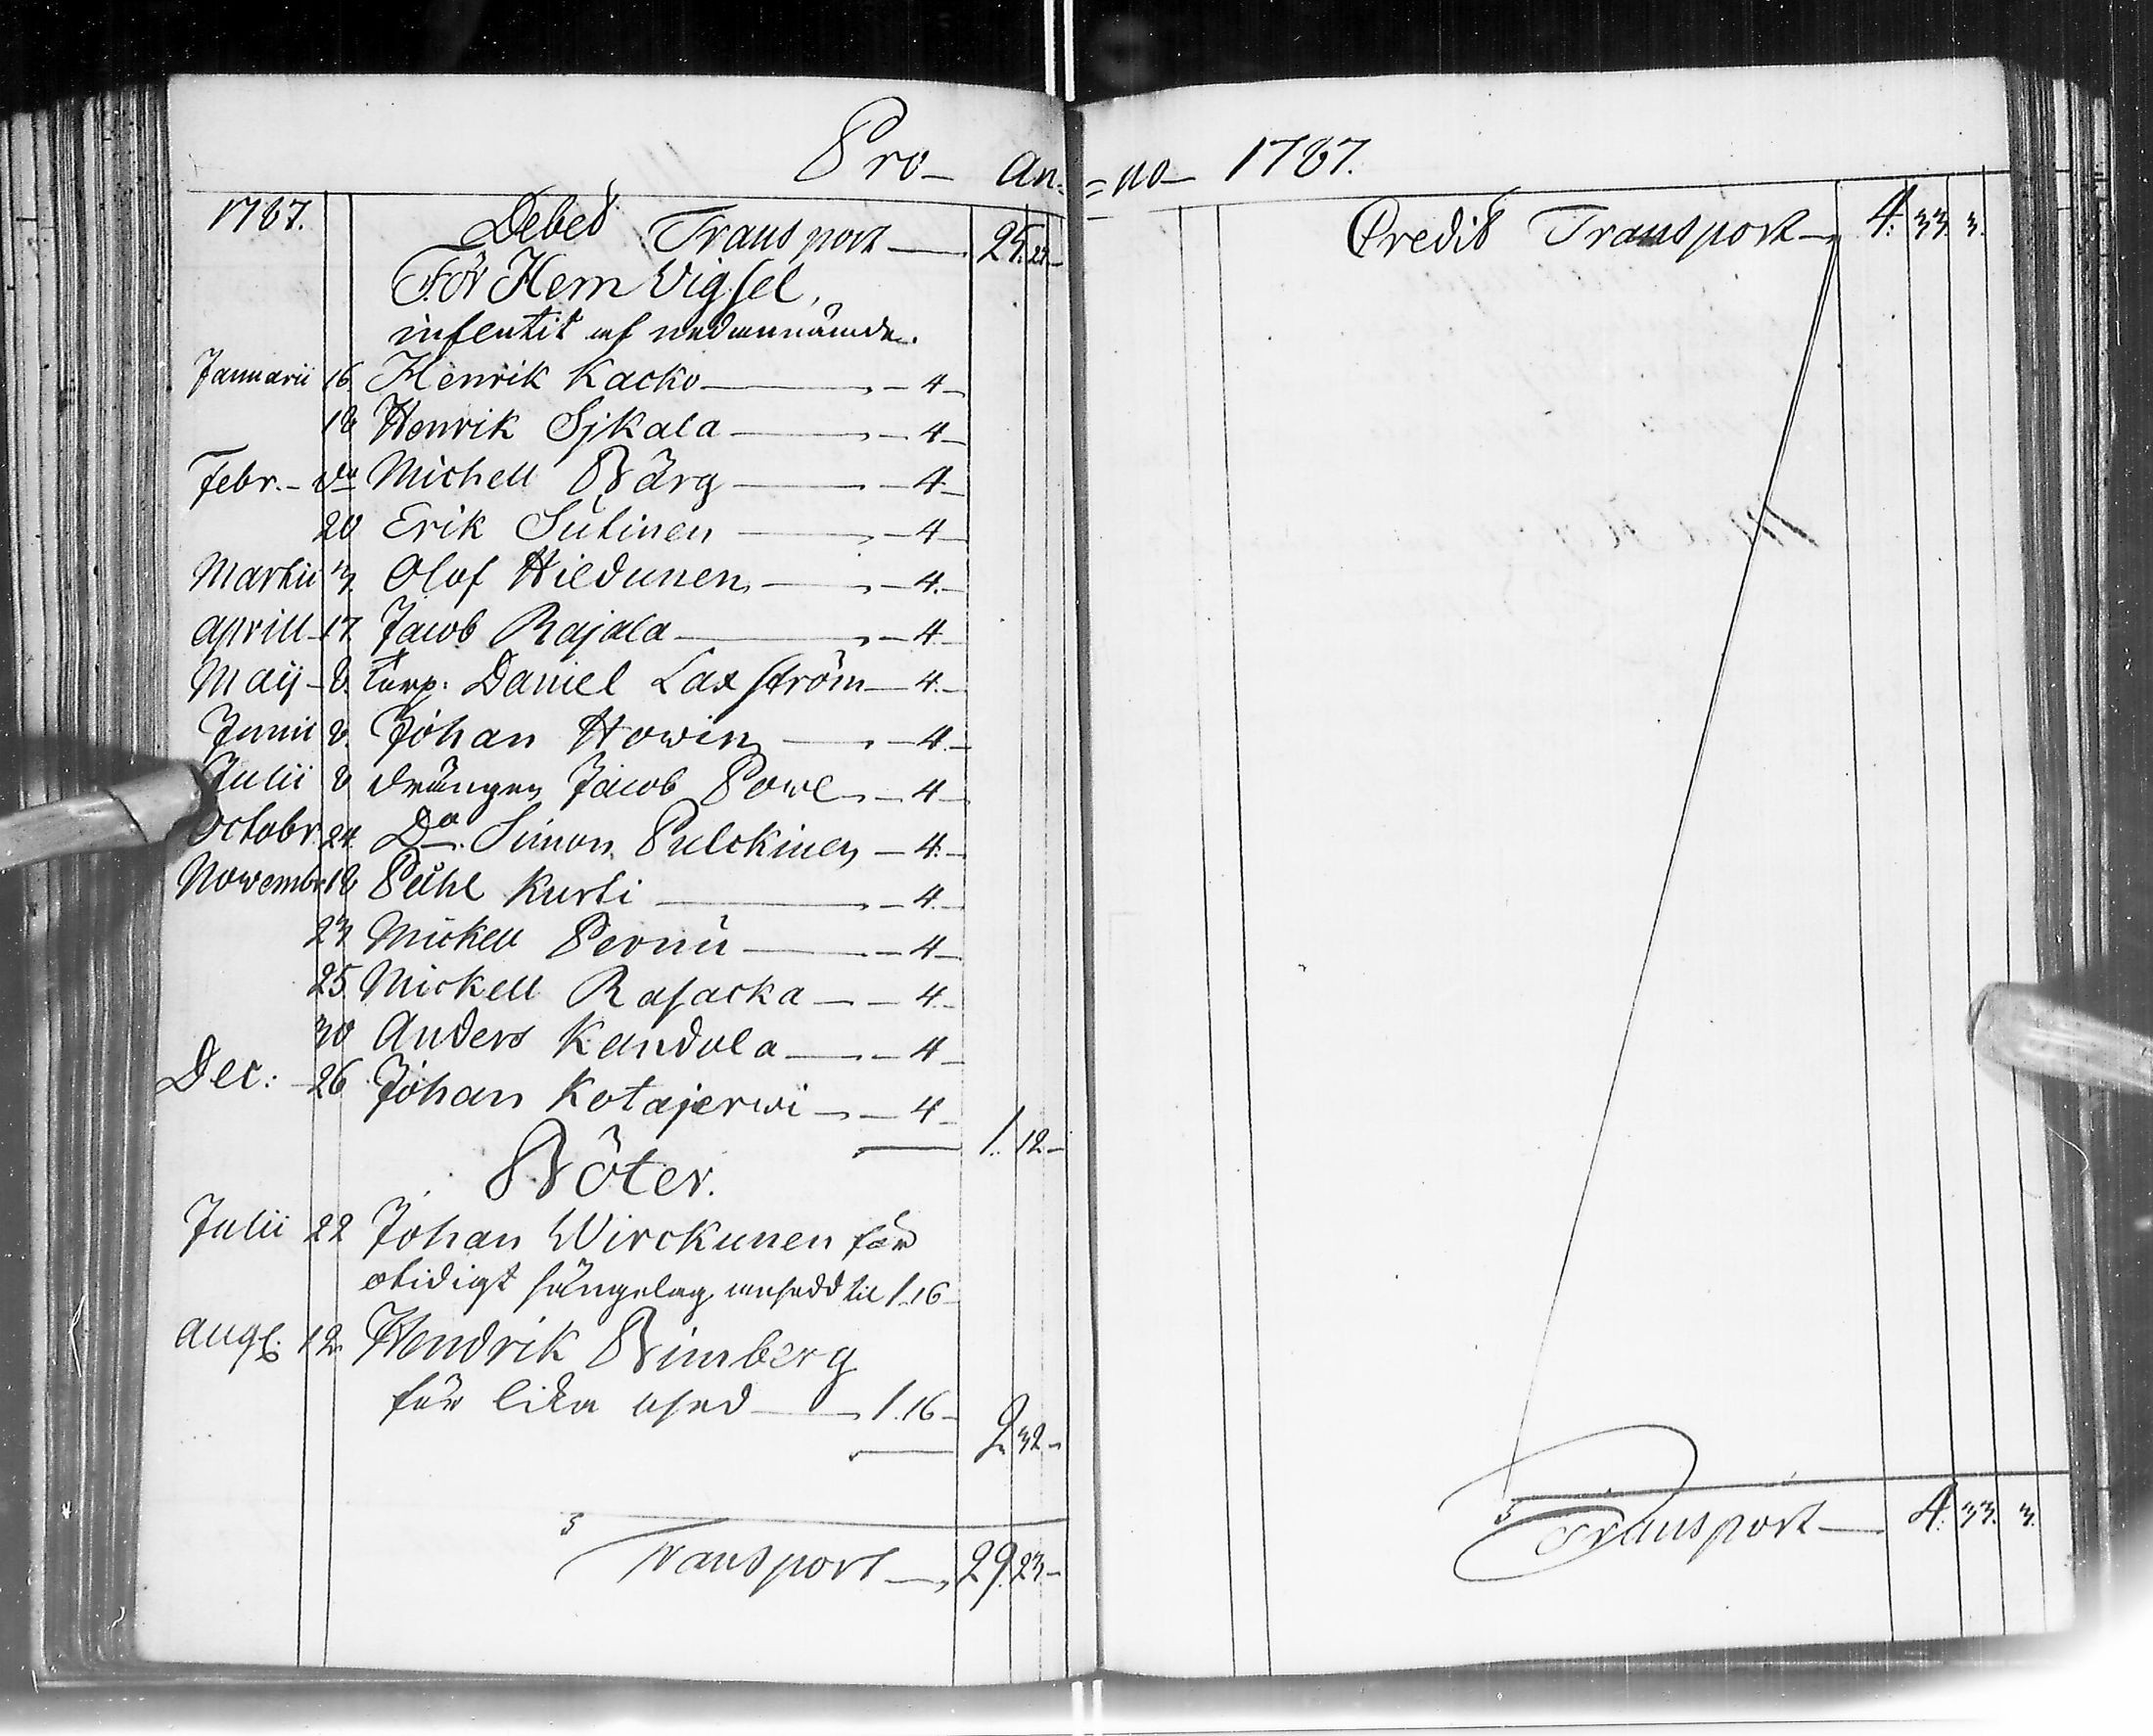 Pro- an-
1787. Debet Transport — 25. 27 —
För Hem Vigsel,
influtit af nedannämde.
Januarii 16 Henrik Kacko — 4 —
18 Henrik Sjkala — 4 —
Febr. - do Michell Bärg — 4 —
20 Erik Sutinen — 4 —
Martii 13. Olof Hiedunen — 4. —
Aprill - 17 Jacob Rajala — 4. —
Maij - 8. torp. Daniel Laxström — 4. —
Junii 8. Johan Howin — 4. —
Julii 8 drängen Jacob Powe — 4 —
Octobr. 24 Do. Simon Pulckinen — 4. —
Novembr 18 Påhl Kurti — 4. —
23 Mickell Pernu — 4 —
25 Mickell Rasacka — 4. —
30 Anders Kandola — 4 —
Dec: 26 Johan Kotajerwi — 4 —
1. 12 —
Böter.
Julii 22 Johan Wirckunen för
otidigt sängelag ansedd til 1. 16 —
Aug. 12 Hendrik Bimberg
för lika osed — 1. 16 —
2. 32 —
Transport — 29. 23 —
= no - 1787.
Credit Transport — 4. 33. 3.
Transport — 4. 33. 3.